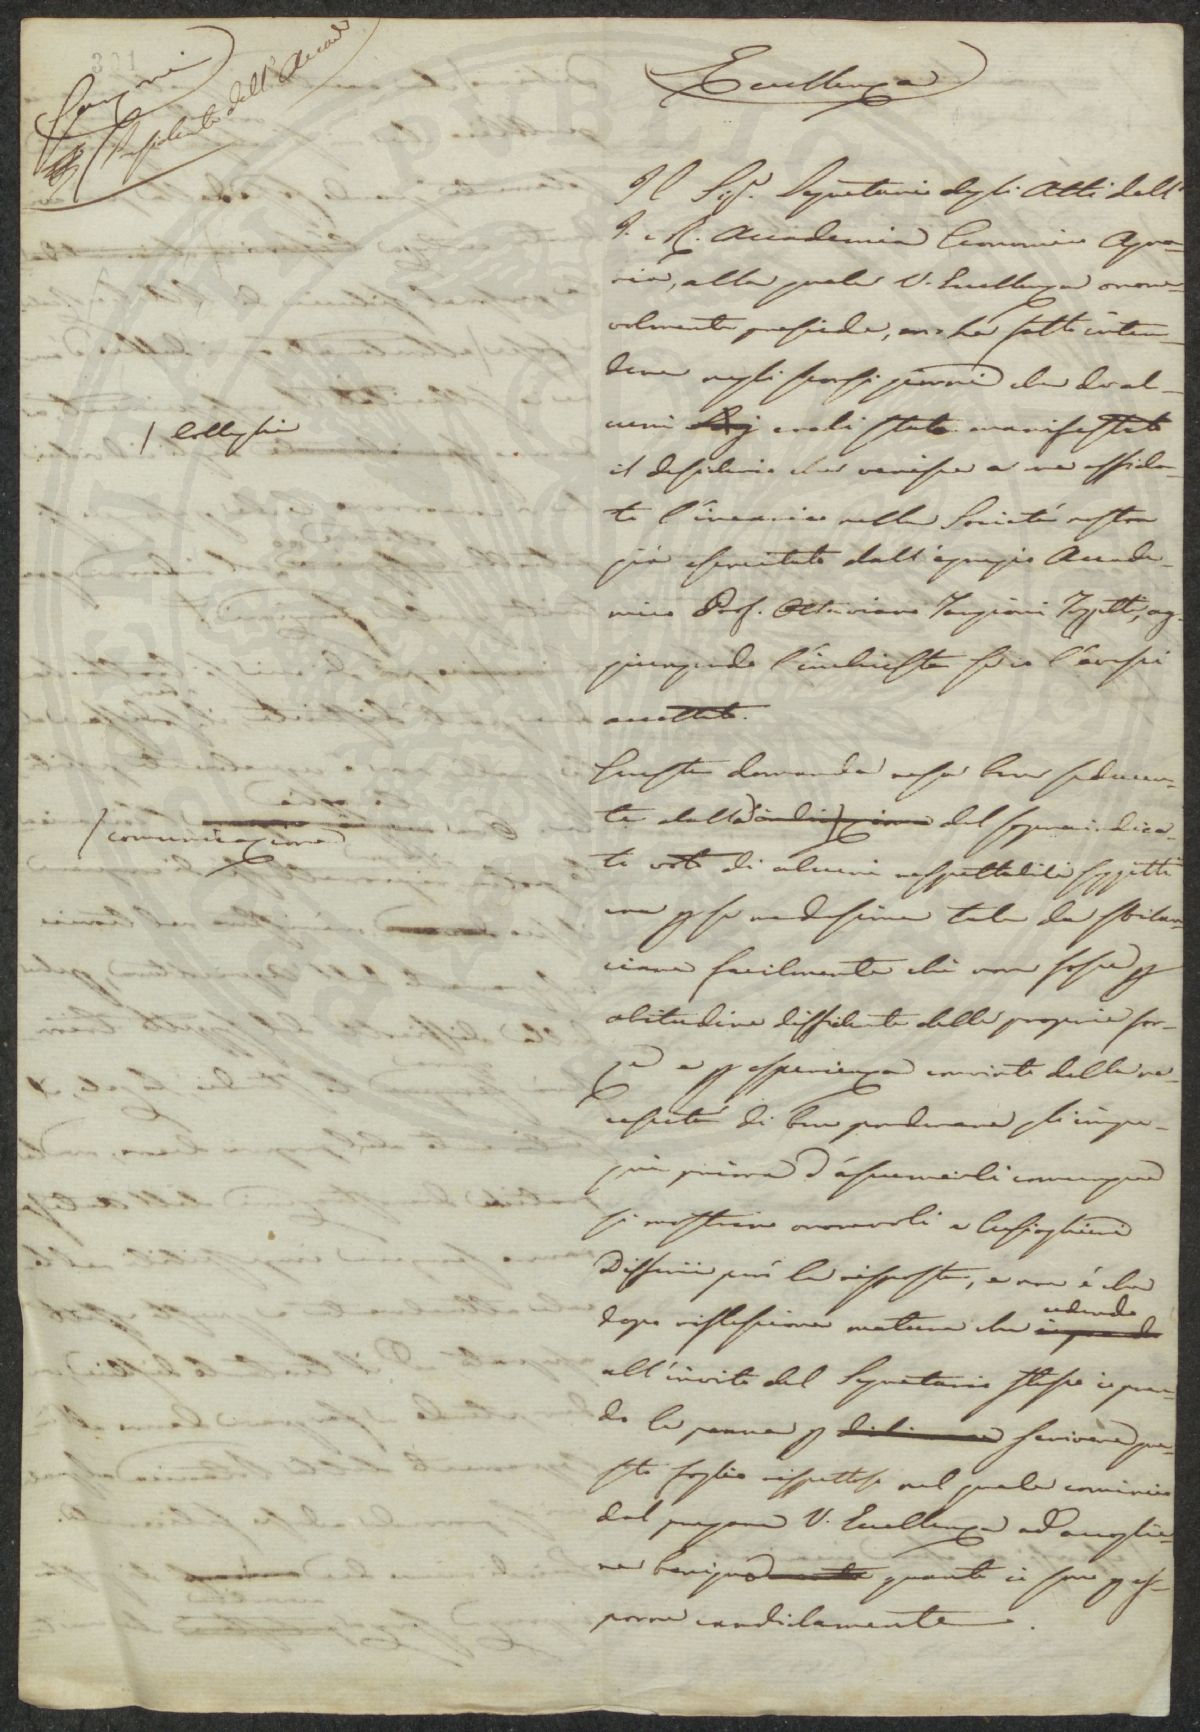 Presidente dell' Accad.
Eccellenza
Il Sig.r Segretario degli Atti dell'
I. e R. Accademia Economico Agra-
ria, alla quale V. Eccellenza onore-
volmente presiede, mi ha fatto inten-
dere negli scorsi giorni che da al-
cuni era li stato manifestato
/ Colleghi
il desiderio che venisse a me affida-
to l'incarico nella Società nostra
già esercitato dall'egregio Accade-
mico Prof. Ottaviano Targioni Tozzetti, ag-
giungendo l'inchiesta se io l'avessi
accettato.
Questa domanda resa ben seducen-
te dalla indicazione del sopraindica-
/ comunicazione
to voto di alcuni rispettabili soggetti
era p se medesima tale da sbilan-
ciare facilmente chi non fosse p
abitudine diffidente delle proprie for-
ze e p esperienza convinto della ne-
cessità di ben ponderare gli impe-
gni prima d'assumerli comunque
si mostrino onorevoli e lusinghieri
Differii però la risposta, e non è che
dopo riflessione matura che cedendo
all'invito del Segretario stesso io pren-
do la penna p scrivere que-
sto foglio rispettoso nel quale comincio
dal pregare V. Eccellenza ad accoglie-
re benigna quanto io sono p es-
porre candidamente.